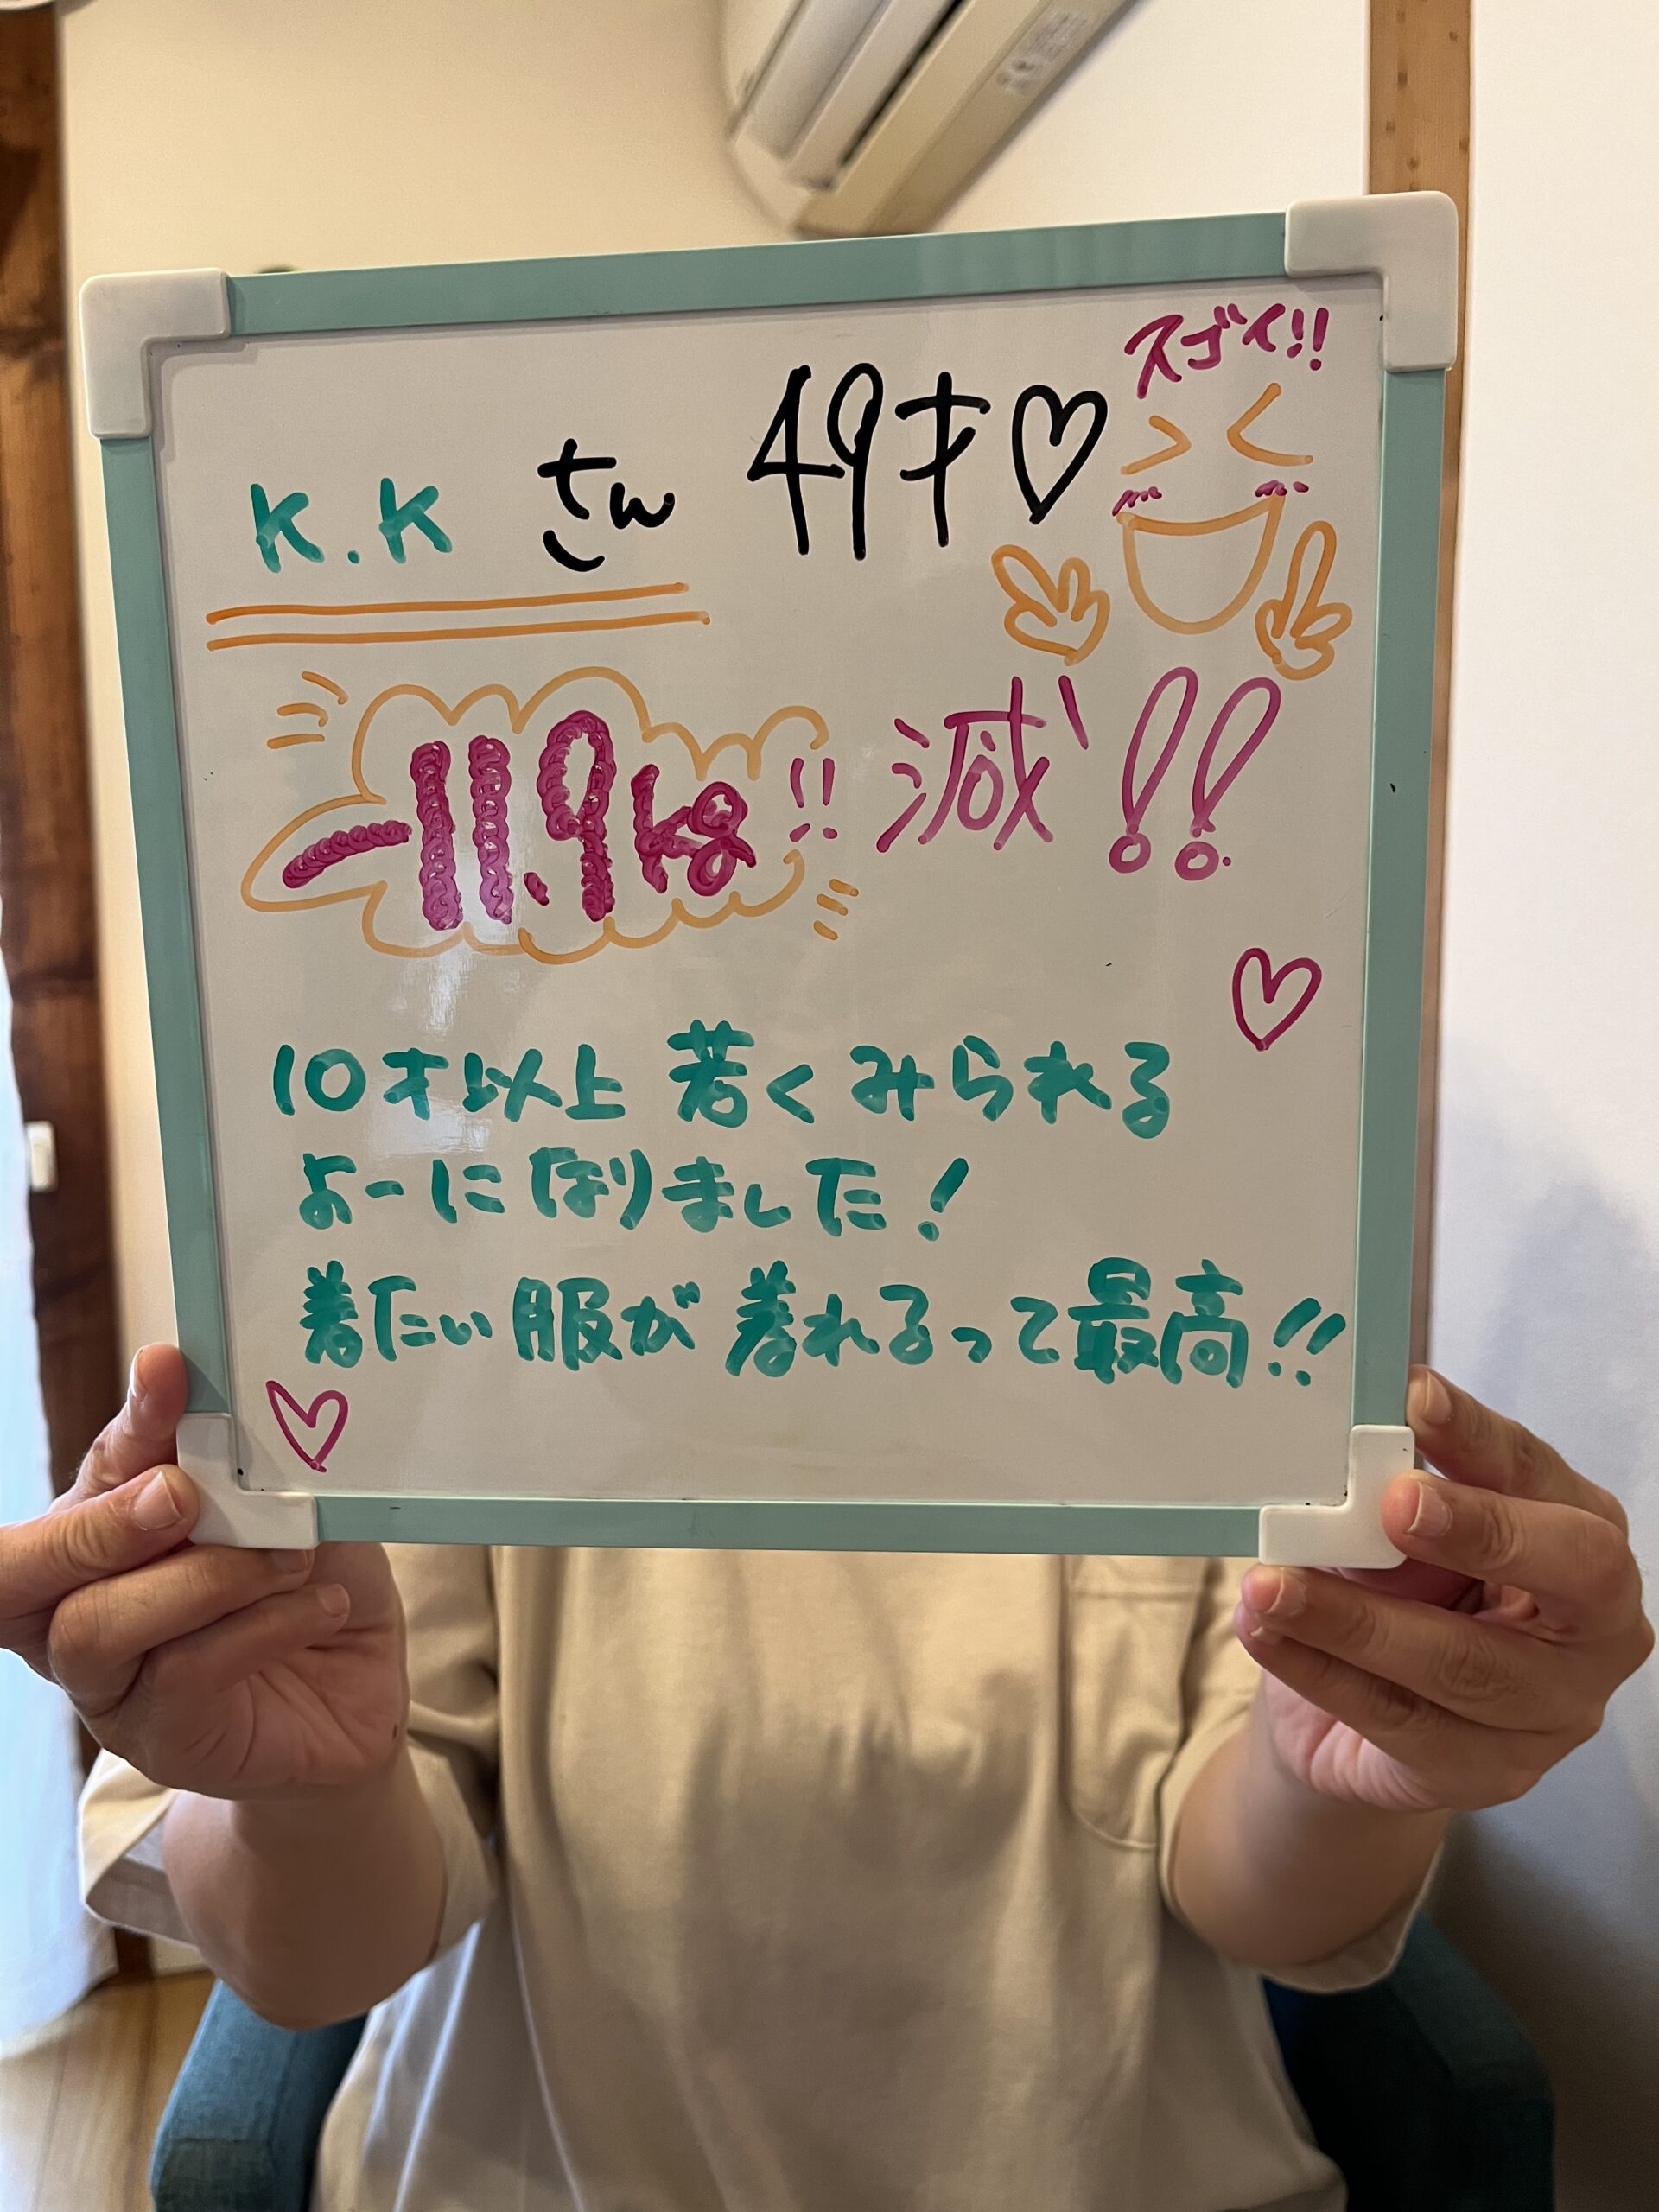 スゴイ!!
K.K さん 49才♡
-11.9kg!! 減!!
10才以上 若くみられる
よーになりました!
着たい服が着れるって最高!!